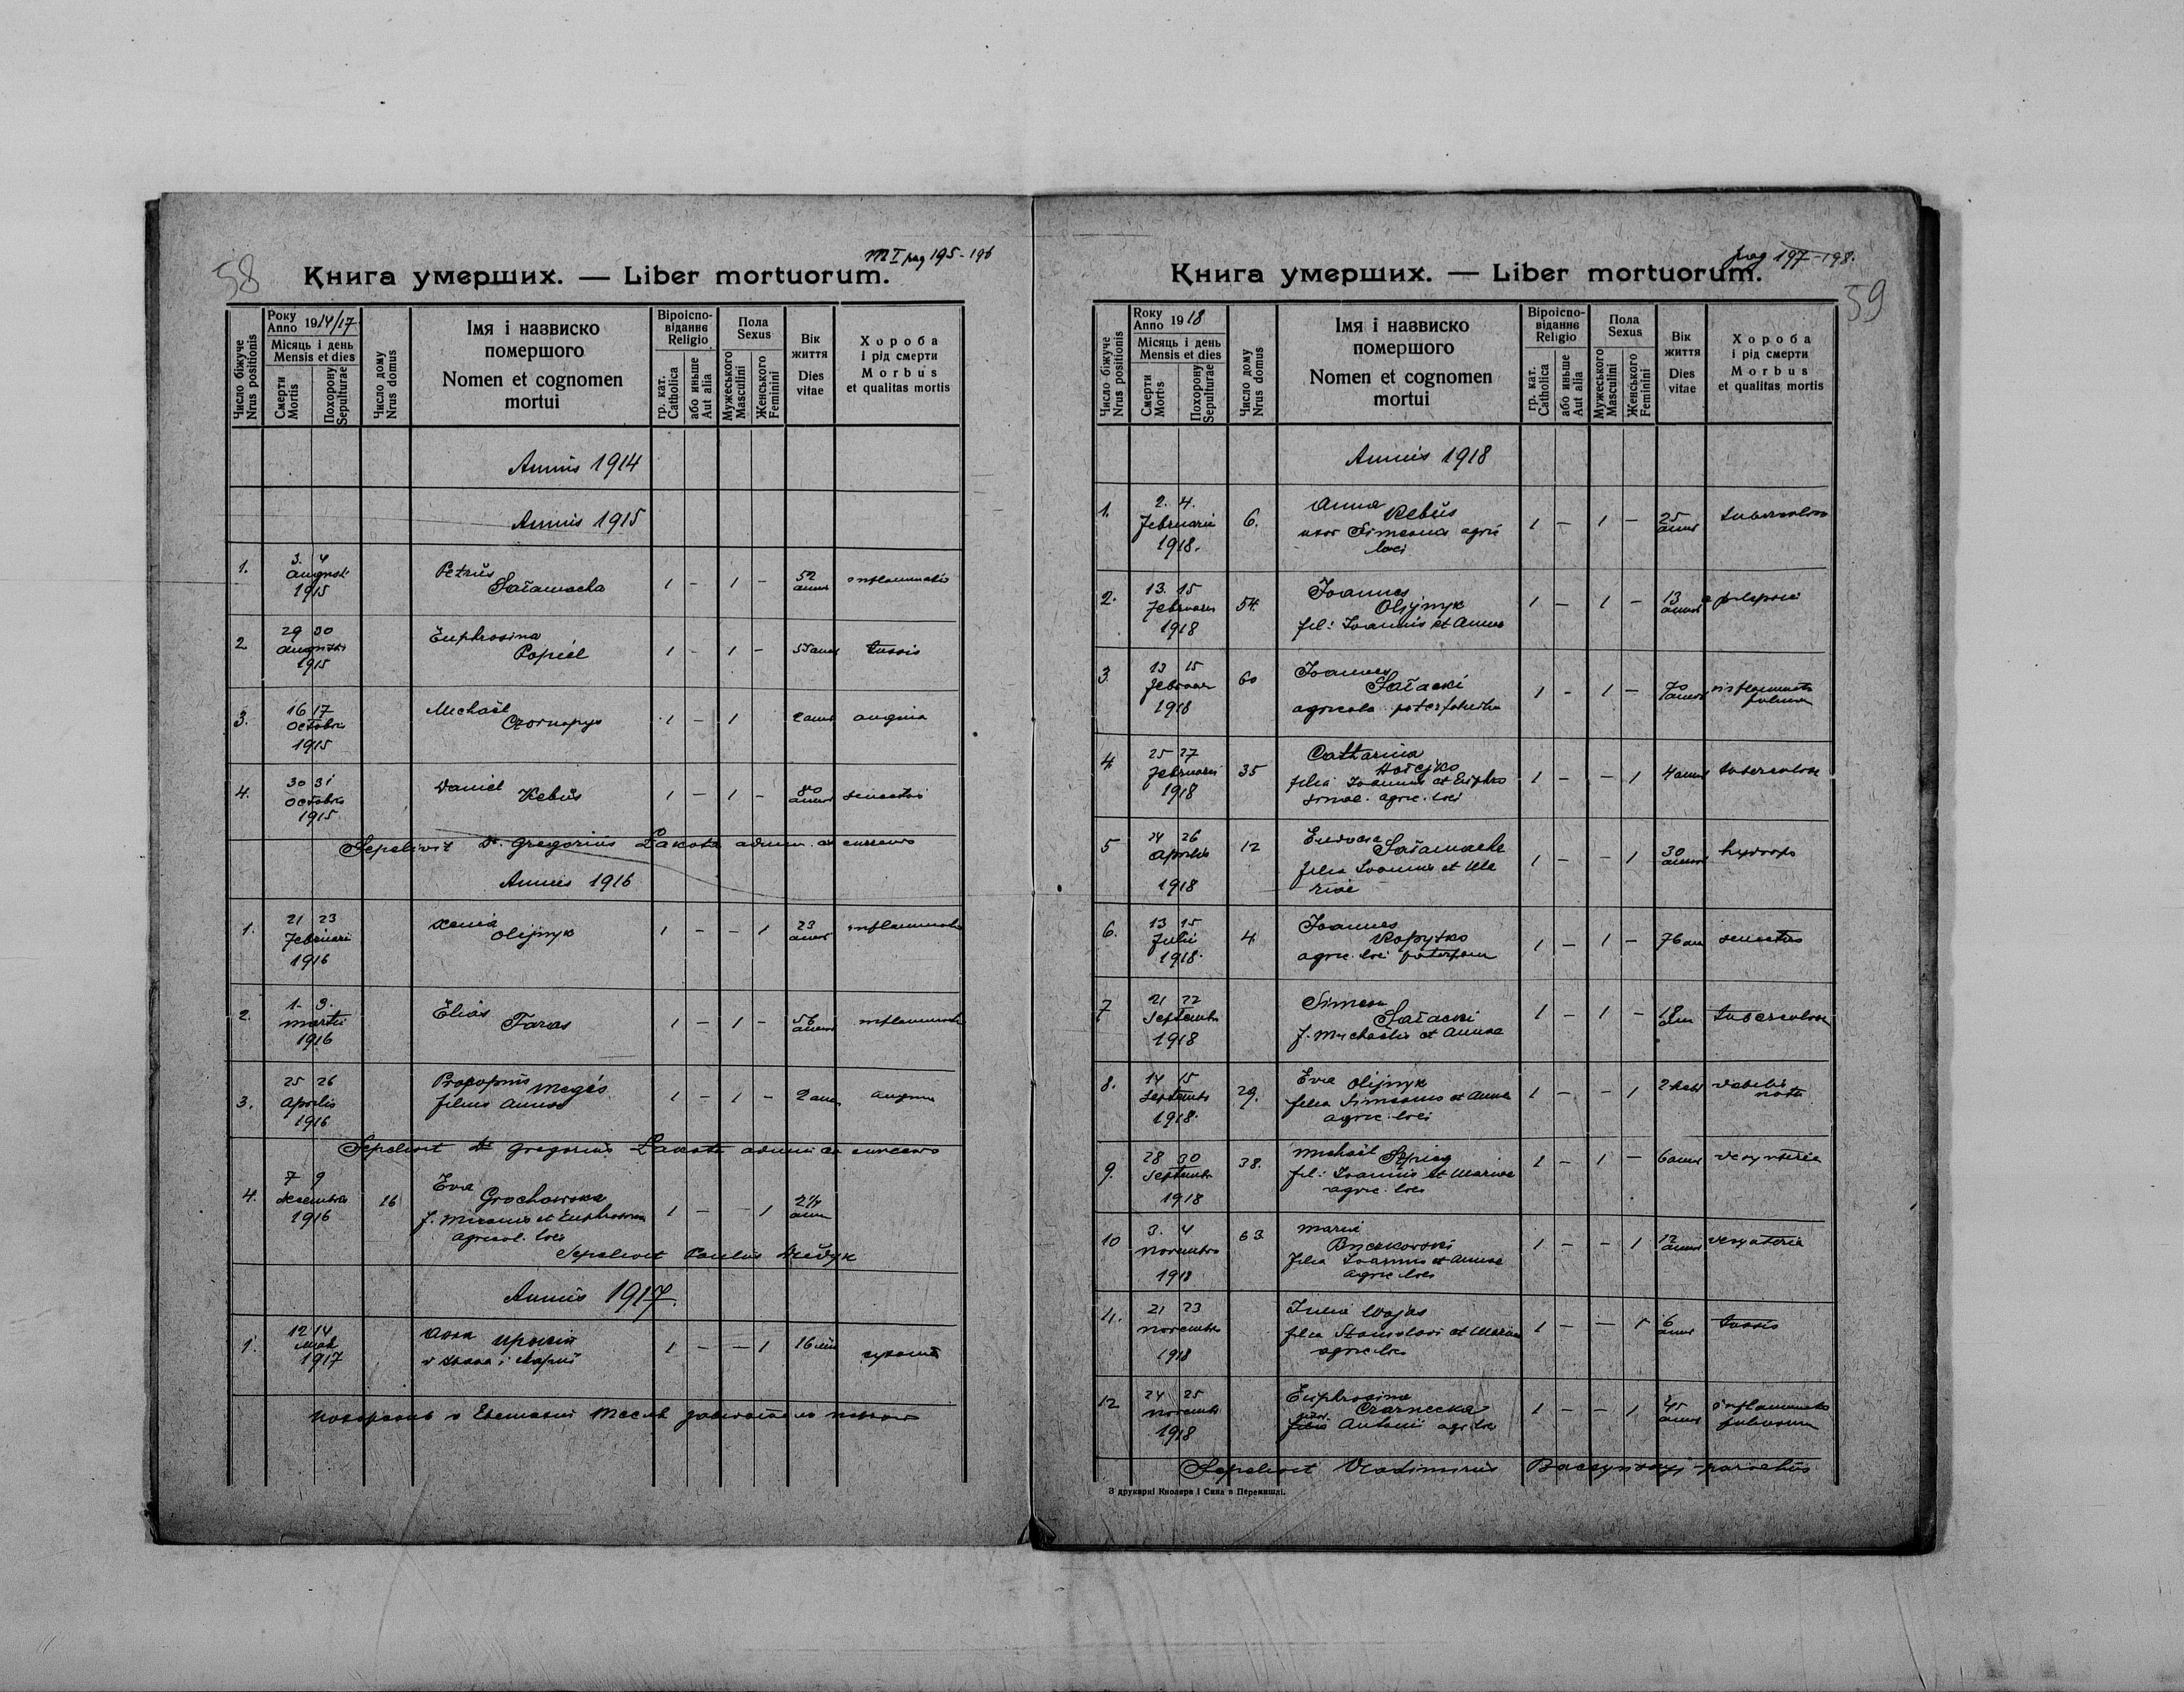 58
m I pag 195-196
Книга умерших. — Liber mortuorum.
Число біжуче
Nrus positionis
Року
Anno 1914/17
Місяць і день
Mensis et dies
Смерти
Mortis
Похорону
Sepulturae
Число дому
Nrus domus
Імя і назвиско
помершого
Nomen et cognomen
mortui
Віроіспо-
віданнє
Religio
гр. кат.
Catholica
або иньше
Aut alia
Пола
Sexus
Мужеського
Masculini
Женського
Feminini
Вік
життя
Dies
vitae
Хороба
і рід смерти
Morbus
et qualitas mortis
Annus 1914
Annus 1915
1. 3. 4 Augusti 1915 Petrus Sałamacha 1 - 1 - 52 annos inflammatio
2 29 30 Augusti 1915 Euphrosina Popiel 1 - 1 - 55 anni tussis
3. 16 17 Octobris 1915 Michaël Czornopys 1 - 1 2 anni angina
4. 30 31 Octobris 1915 Daniel Kebus 1 - 1 - 80 annos senectus
Sepelivit Dr. Gregorius Łakota admin. ex currendo
Annus 1916
1. 21 23 Februarii 1916 Xenia Olijnyk 1 - - 1 23 annos inflammatio
2. 1. 3. Martii 1916 Elias Taras 1 - 1 - 56 annos inflammatio
3. 25 26 Aprilis 1916 Magés filius Annae 1 - 1 - 2 ann angina
Sepelivit Dr Gregorius Łakota admin ex currendo
4. 7 9 decembris 1916 26 Eva Grochowska f. Mironis et Euphrosinae agricol. loci 1 - - 1 2 ½ annos
Sepelivit Paulus
Annus 1917.
1. 12 14 1917 Анна 1 - - 1 16 літ сухоти
Похоронив о Евстахий завідатель
pag 197-198.
59
Книга умерших. — Liber mortuorum.
Число біжуче
Nrus positionis
Року
Anno 1918
Місяць і день
Mensis et dies
Смерти
Mortis
Похорону
Sepulturae
Число дому
Nrus domus
Імя і назвиско
помершого
Nomen et cognomen
mortui
Віроіспо-
віданнє
Religio
гр. кат.
Catholica
або иньше
Aut alia
Пола
Sexus
Мужеського
Masculini
Женського
Feminini
Вік
життя
Dies
vitae
Хороба
і рід смерти
Morbus
et qualitas mortis
Annus 1918
1. 2. 4. Februarii 1918. 6. Anna Kebus uxor Simeonis agric loci 1 - 1 - 25 annos tuberculosa
2. 13. 15 Februarii 1918 54. Joannes Olijnyk fil: Joannis et Annae 1 - 1 - 13 annos epilepsia
3. 13 15 Februar 1918 60 Joannes Sałacki agricola 1 - 1 - 70 annos inflammatio pulmon
4. 25 27 Februarii 1918 35 Catharina Hołejko filia Joannis et Euphrosinae. agric. loci 1 - - 1 4 annos tuberculosa
5 24 26 Aprilis 1918 12 Eudocia Sałamacha filia Joannis et Mariae 1 - - 1 30 annos hydrops
6. 13 15 Julii 1918. 4 Joannes Kopytko agric. loci paterfam 1 - 1 - 76 ann senectus
7 21 22 Septembr 1918 Simeon Sałacki f. Michaelis et Annae 1 - 1 - 18 ann tuberculosa
8. 14 15 Septembr 1918. 29. Eva Olijnyk filia Simeonis et Annae agric. loci 1 - - 1 2 debilis nata
9. 28 30 Septembr 1918 38. Michaël Szpieg fil: Joannis et Mariae agric. loci 1 - 1 - 6 annos desynteria
10 3. 4 Novembris 1918 63 Maria filia Joannis et Annae agric. loci 1 - - 1 12 annos desynteria
11. 21 23 Novembris 1918 Julia Wojas filia Stanislavi et Mariae agric loci 1 - - 1 6 annos tussis
12 24 25 Novembr 1918 Euphrosina Czarnecka Antonii agr. loci 1 - - 1 45 annos inflammatio pulmonum
Sepelivit Vladimirus Baczynskyj - parochus
З друкарні Кнолера і Сина в Перемишлі.